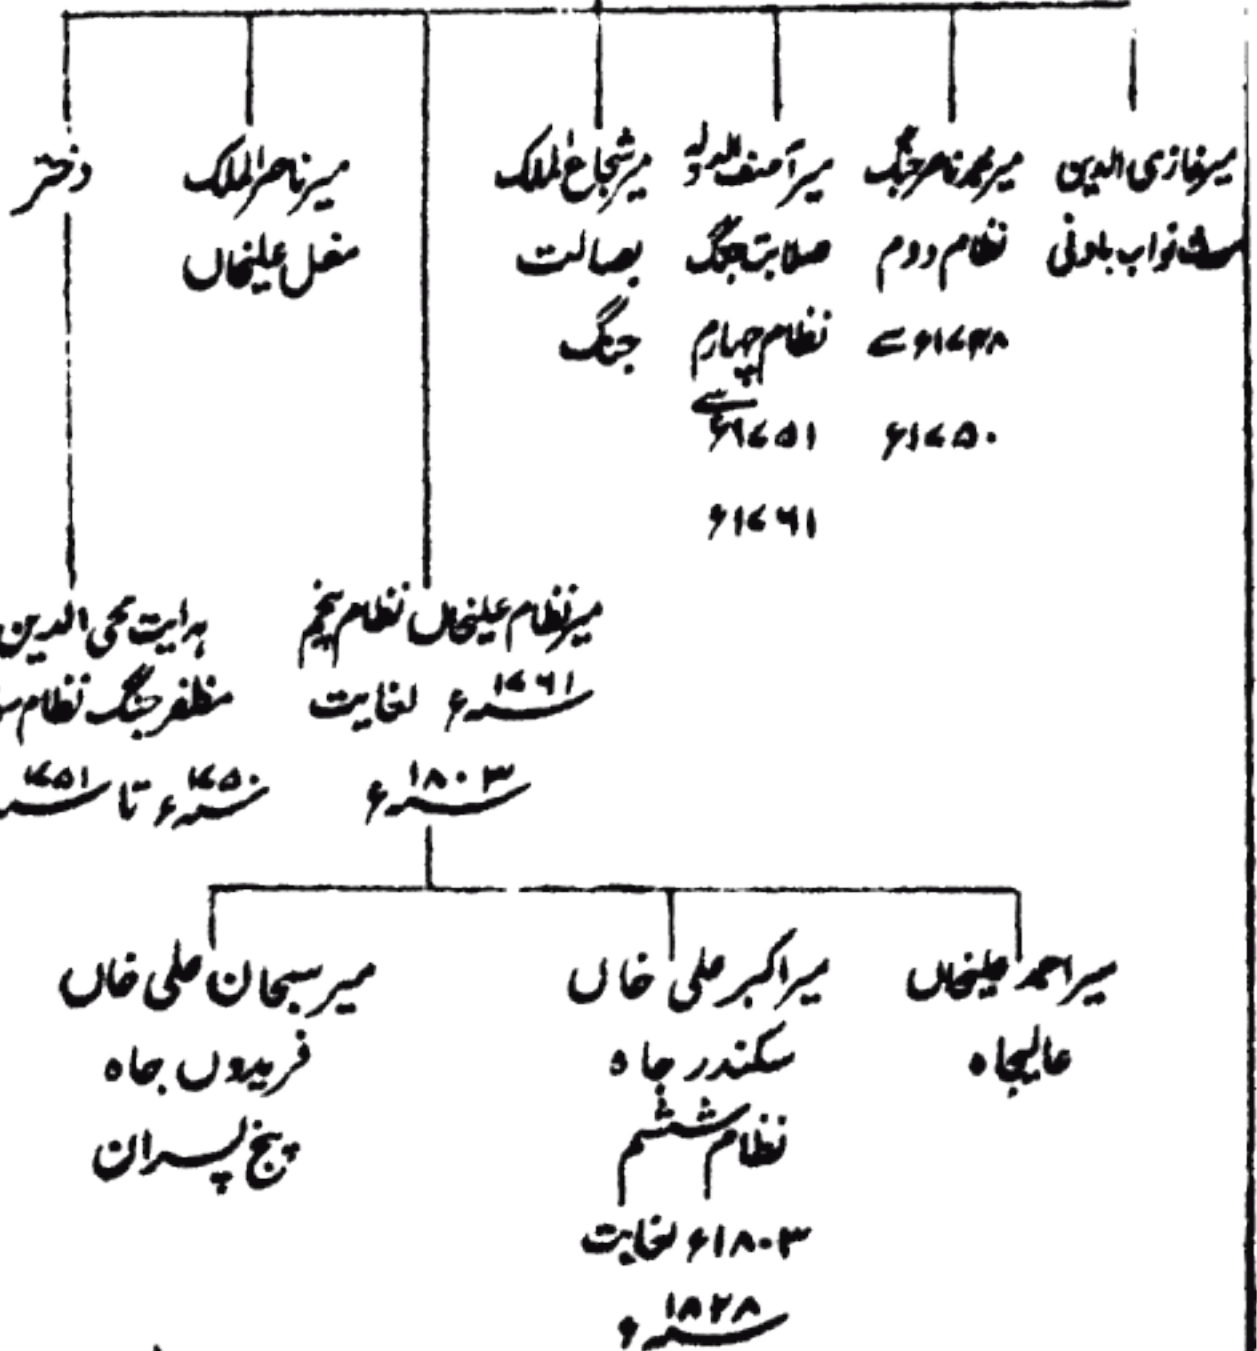 میر غازی الدین
نواب باونی
میر محمد ناصر جنگ
نظام دوم
۱۷۴۸ء سے
۱۷۵۰ء
میر آصف الدولہ
صلابت جنگ
نظام چہارم
سے
۱۷۵۱ء
۱۷۶۱ء
میر شجاع الملک
بصالت
جنگ
میر ناصر الملک
مغل علیخاں
دختر
میر نظام علیخاں نظام پنجم
سنہ ۱۷۶۱ء لغایت
سنہ ۱۸۰۳ء
ہدایت محی الدین
مظفر جنگ نظام
سنہ ۱۷۵۰ء تا سنہ ۱۷۵۱
میر احمد علیخاں
عالیجاہ
میر اکبر علی خاں
سکندر جاہ
نظام ششم
۱۸۰۳ء لغایت
سنہ ۱۸۲۸ء
میر سبحان علی خاں
فریدوں جاہ
پنج پسران